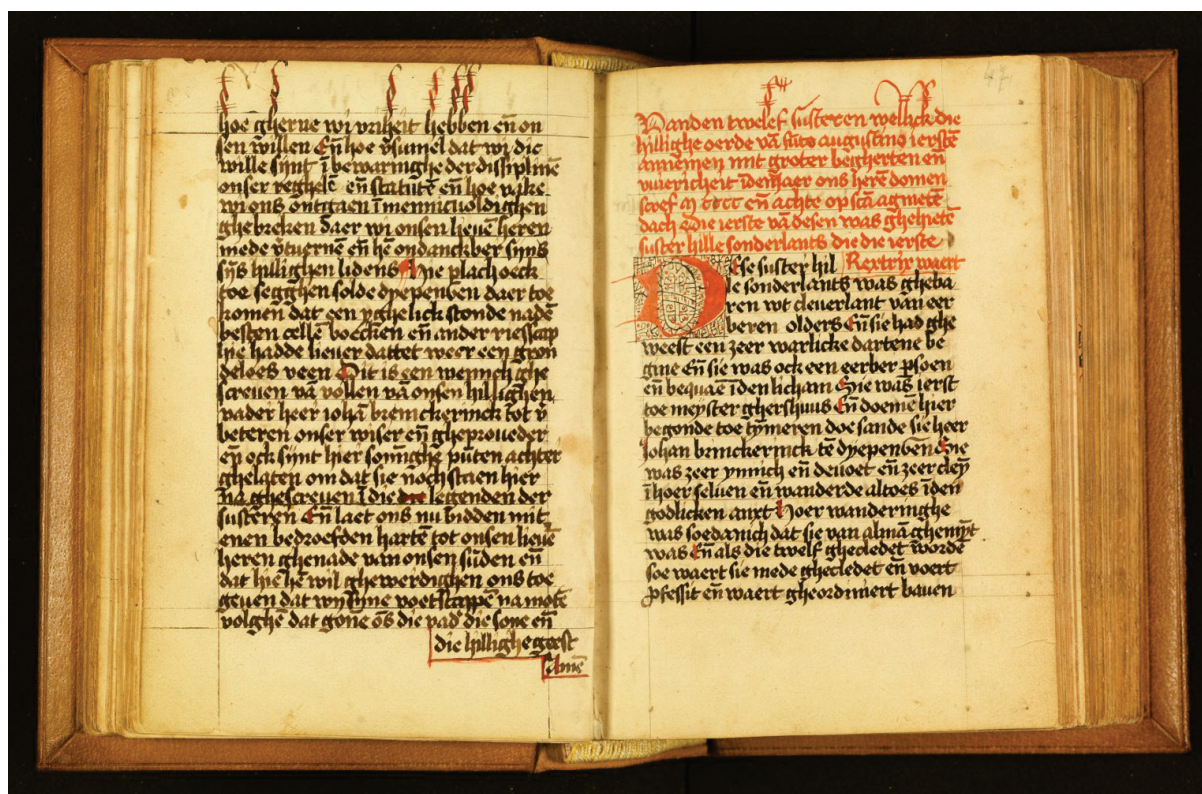 hoe gherne wi vriheit hebben en̄ on
sen willen En̄ hoe v̄sumel dat wi die
wille sijnt ī bewaringhe der dissiplinē
onser reghelē en̄ statutē en̄ hoe vake
wi ons ontgaen ī mennichuoldighen
ghebreken daer wi onsen lieuē heren
mede v̄tuernē en̄ hē ondanckber sijns
sijns hillighen lidens Hye plach oeck
toe segghen solde dyepenuen daer toe
komen dat een yghelick stonde nadē
besten cellē boecken en̄ ander riesscap
hie hadde lieuer dattet weer een gron
deloes veen Dit is een wennich ghe
screuen vā vollen vā onsen hillighen
vader heer iohā brinckerinck tot v̄
beteren onser wiser en̄ gheproueder
en̄ ock sijnt hier sōmighe pūten achter
ghelaten om dat sie noch staen hier
na ghescreuen ī die legenden der
susteren En̄ laet ons nu bidden mit
enen bedroefden hartē tot onsen lieuē
heren ghenade van onsen sūden en̄
dat hie hē wil ghewerdighen ons toe
geuen dat wy sijne voetstappē na motē
volghē dat gōne ōs die vad' die sone en̄
die hillighe geest
Amē
47
Vanden twelef susteren wellick die
hillighe oerde vā sūte augustino ierstē
annemen mit groter begherten en̄
vuericheit ī den iaer ons herē domen
screef M cccc en̄ achte op sc̄a agnetē
dach Die ierste vā desen was ghehietē
suster hille sonderlants die die ierste
Rextrix waert
Dese suster hil
le sonderlants was gheba
ren wt cleuerlant van eer
beren olders En̄ sie had ghe
weest een zeer warlicke dartene be
gine En̄ sie was ock een eerber p̄soen
en̄ bequaē ī den licham Sie was ierst
toe meyster ghershuus En̄ doemē hier
begonde toe tȳmeren doe sande sie heer
Johan brinckerinck tē dyepenuen Sie
was zeer ynnich en̄ deuoet en̄ zeer cleȳ
ī hoer seluen en̄ wanderde altoes ī den
godlicken anxt Hoer wanderinghe
was soedanich dat sie van almā ghemȳt
was En̄ als die twelf ghecledet wordē
soe waert sie mede ghecledet en̄ voert
p̄fessit en̄ waert gheordiniert bauen